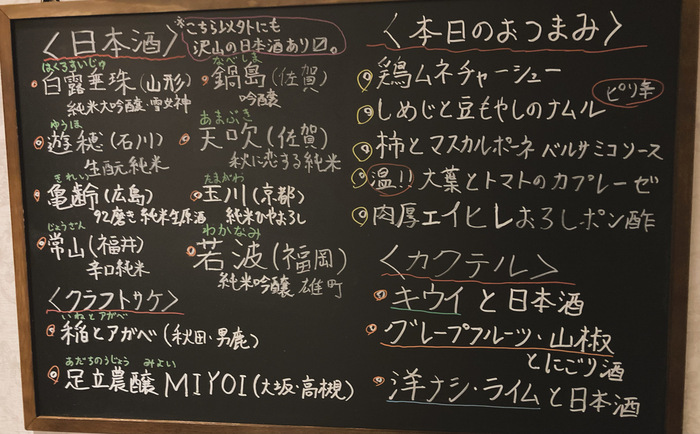 〈日本酒〉
※こちら以外にも
沢山の日本酒あり〼。
はくろすいしゅ
白露垂珠(山形)
純米大吟醸・雪女神
なべしま
鍋島(佐賀)
吟醸
ゆうほ
遊穂(石川)
生酛純米
あまぶき
天吹(佐賀)
秋に恋する純米
きれい
亀齢(広島)
92磨き純米生原酒
たまがわ
玉川(京都)
純米ひやおろし
じょうざん
常山(福井)
辛口純米
わかなみ
若波(福岡)
純米吟醸 雄町
〈クラフトサケ〉
いねとアガベ
稲とアガベ(秋田・男鹿)
あだちのうじょう みよい
足立農醸 MIYOI(大坂・高槻)
〈本日のおつまみ〉
鶏ムネチャーシュー
ピリ辛
しめじと豆もやしのナムル
柿とマスカルポーネ バルサミコソース
温!! 大葉とトマトのカプレーゼ
肉厚エイヒレおろしポン酢
〈カクテル〉
キウイと日本酒
グレープフルーツ・山椒
とにごり酒
洋ナシ・ライムと日本酒